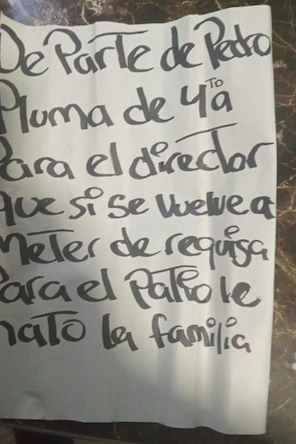 De Parte de Pedro
Pluma de 4ta
Para el director
que si se vuelve a
meter de requisa
Para el Patio le
mato la familia